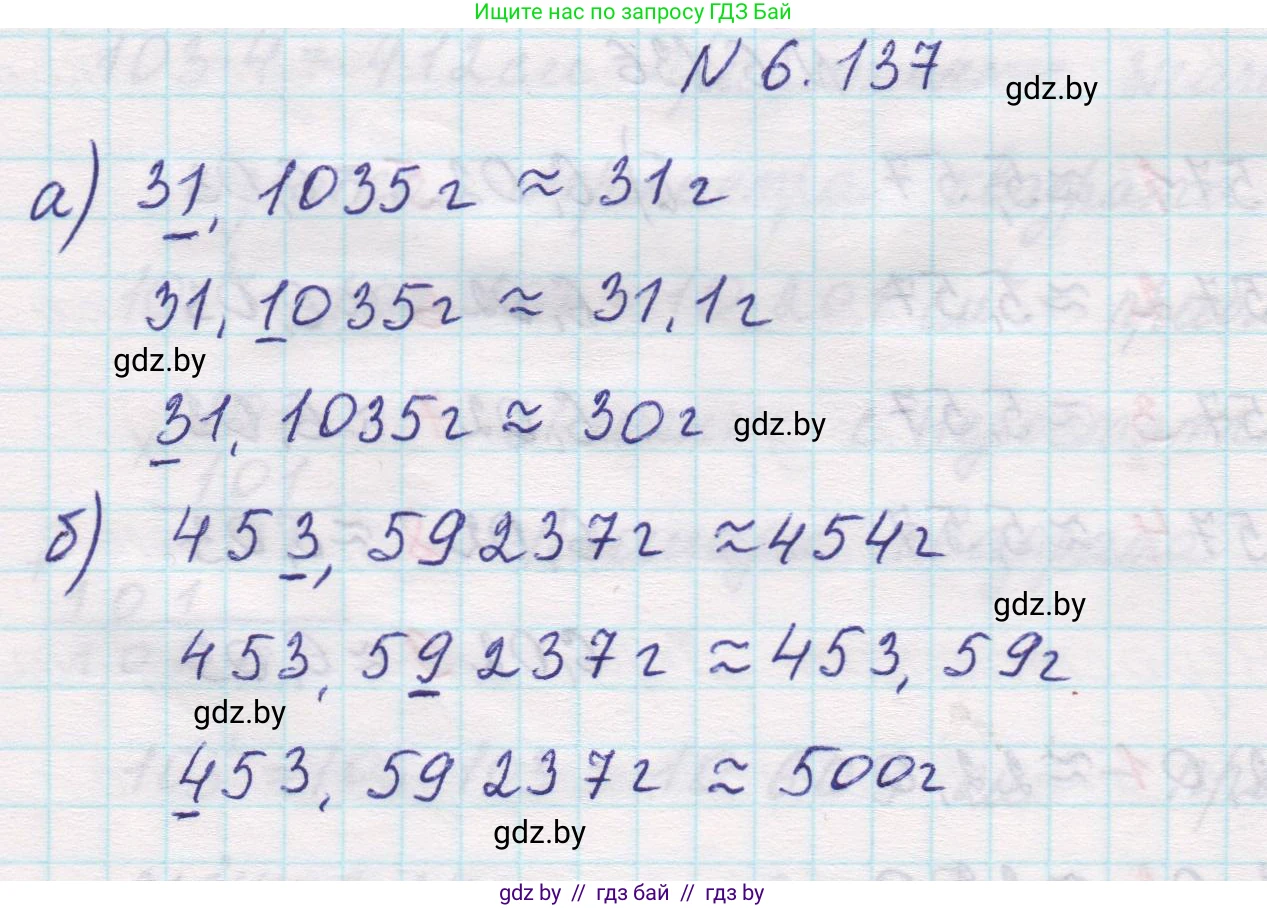 Ищите нас по запросу ГДЗ Бай
N 6.137
gdz.by
а) 31,1035г ≈ 31г
31,1035г ≈ 31,1г
gdz.by
31,1035г ≈ 30г
gdz.by
б) 453,59237г ≈ 454г
gdz.by
453,59237г ≈ 453,59г
gdz.by
453,59237г ≈ 500г
gdz.by
gdz.by // гдз бай // гдз by